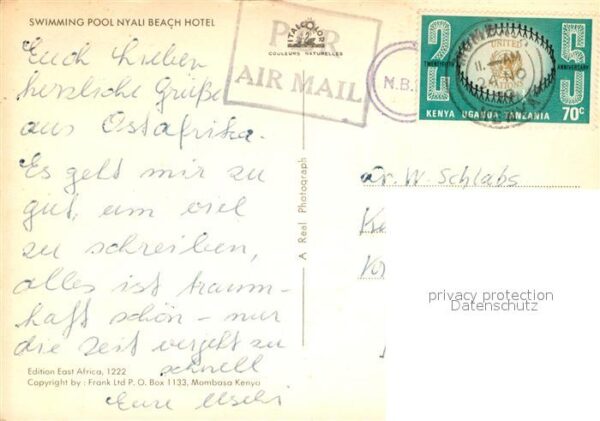 SWIMMING POOL NYALI BEACH HOTEL
Euch Lieben
herzliche Grüße
aus Ostafrika.
Es geht mir zu
gut, um viel
zu schreiben,
alles ist traum-
haft schön - nur
die Zeit vergeht zu
schnell
Eure Uschi
Edition East Africa, 1222
Copyright by : Frank Ltd P. O. Box 1133, Mombasa Kenya
VITALCOLOR
COULEURS NATURELLES
A Real Photograph
PAR
AIR MAIL
N.B.
25
TWENTYFIFTH
ANNIVERSARY
UNITED
KENYA UGANDA TANZANIA 70c
W. Schlabs
privacy protection
Datenschutz